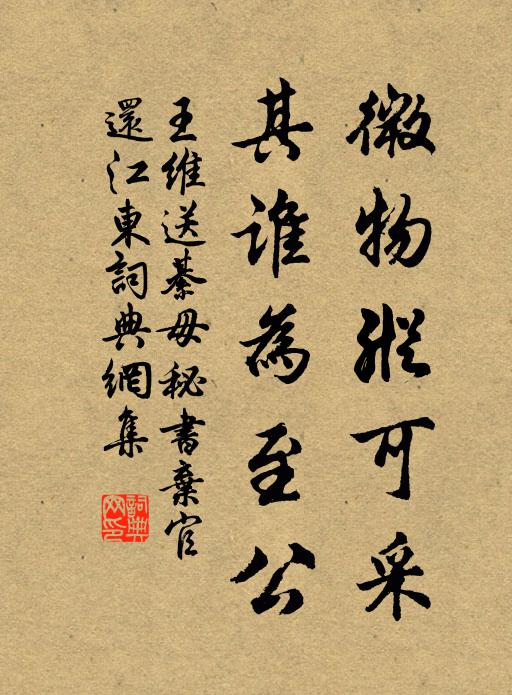 微物縱可采
其誰為至公
王維送綦毋秘書棄官
還江東詞典網集
詞典網印